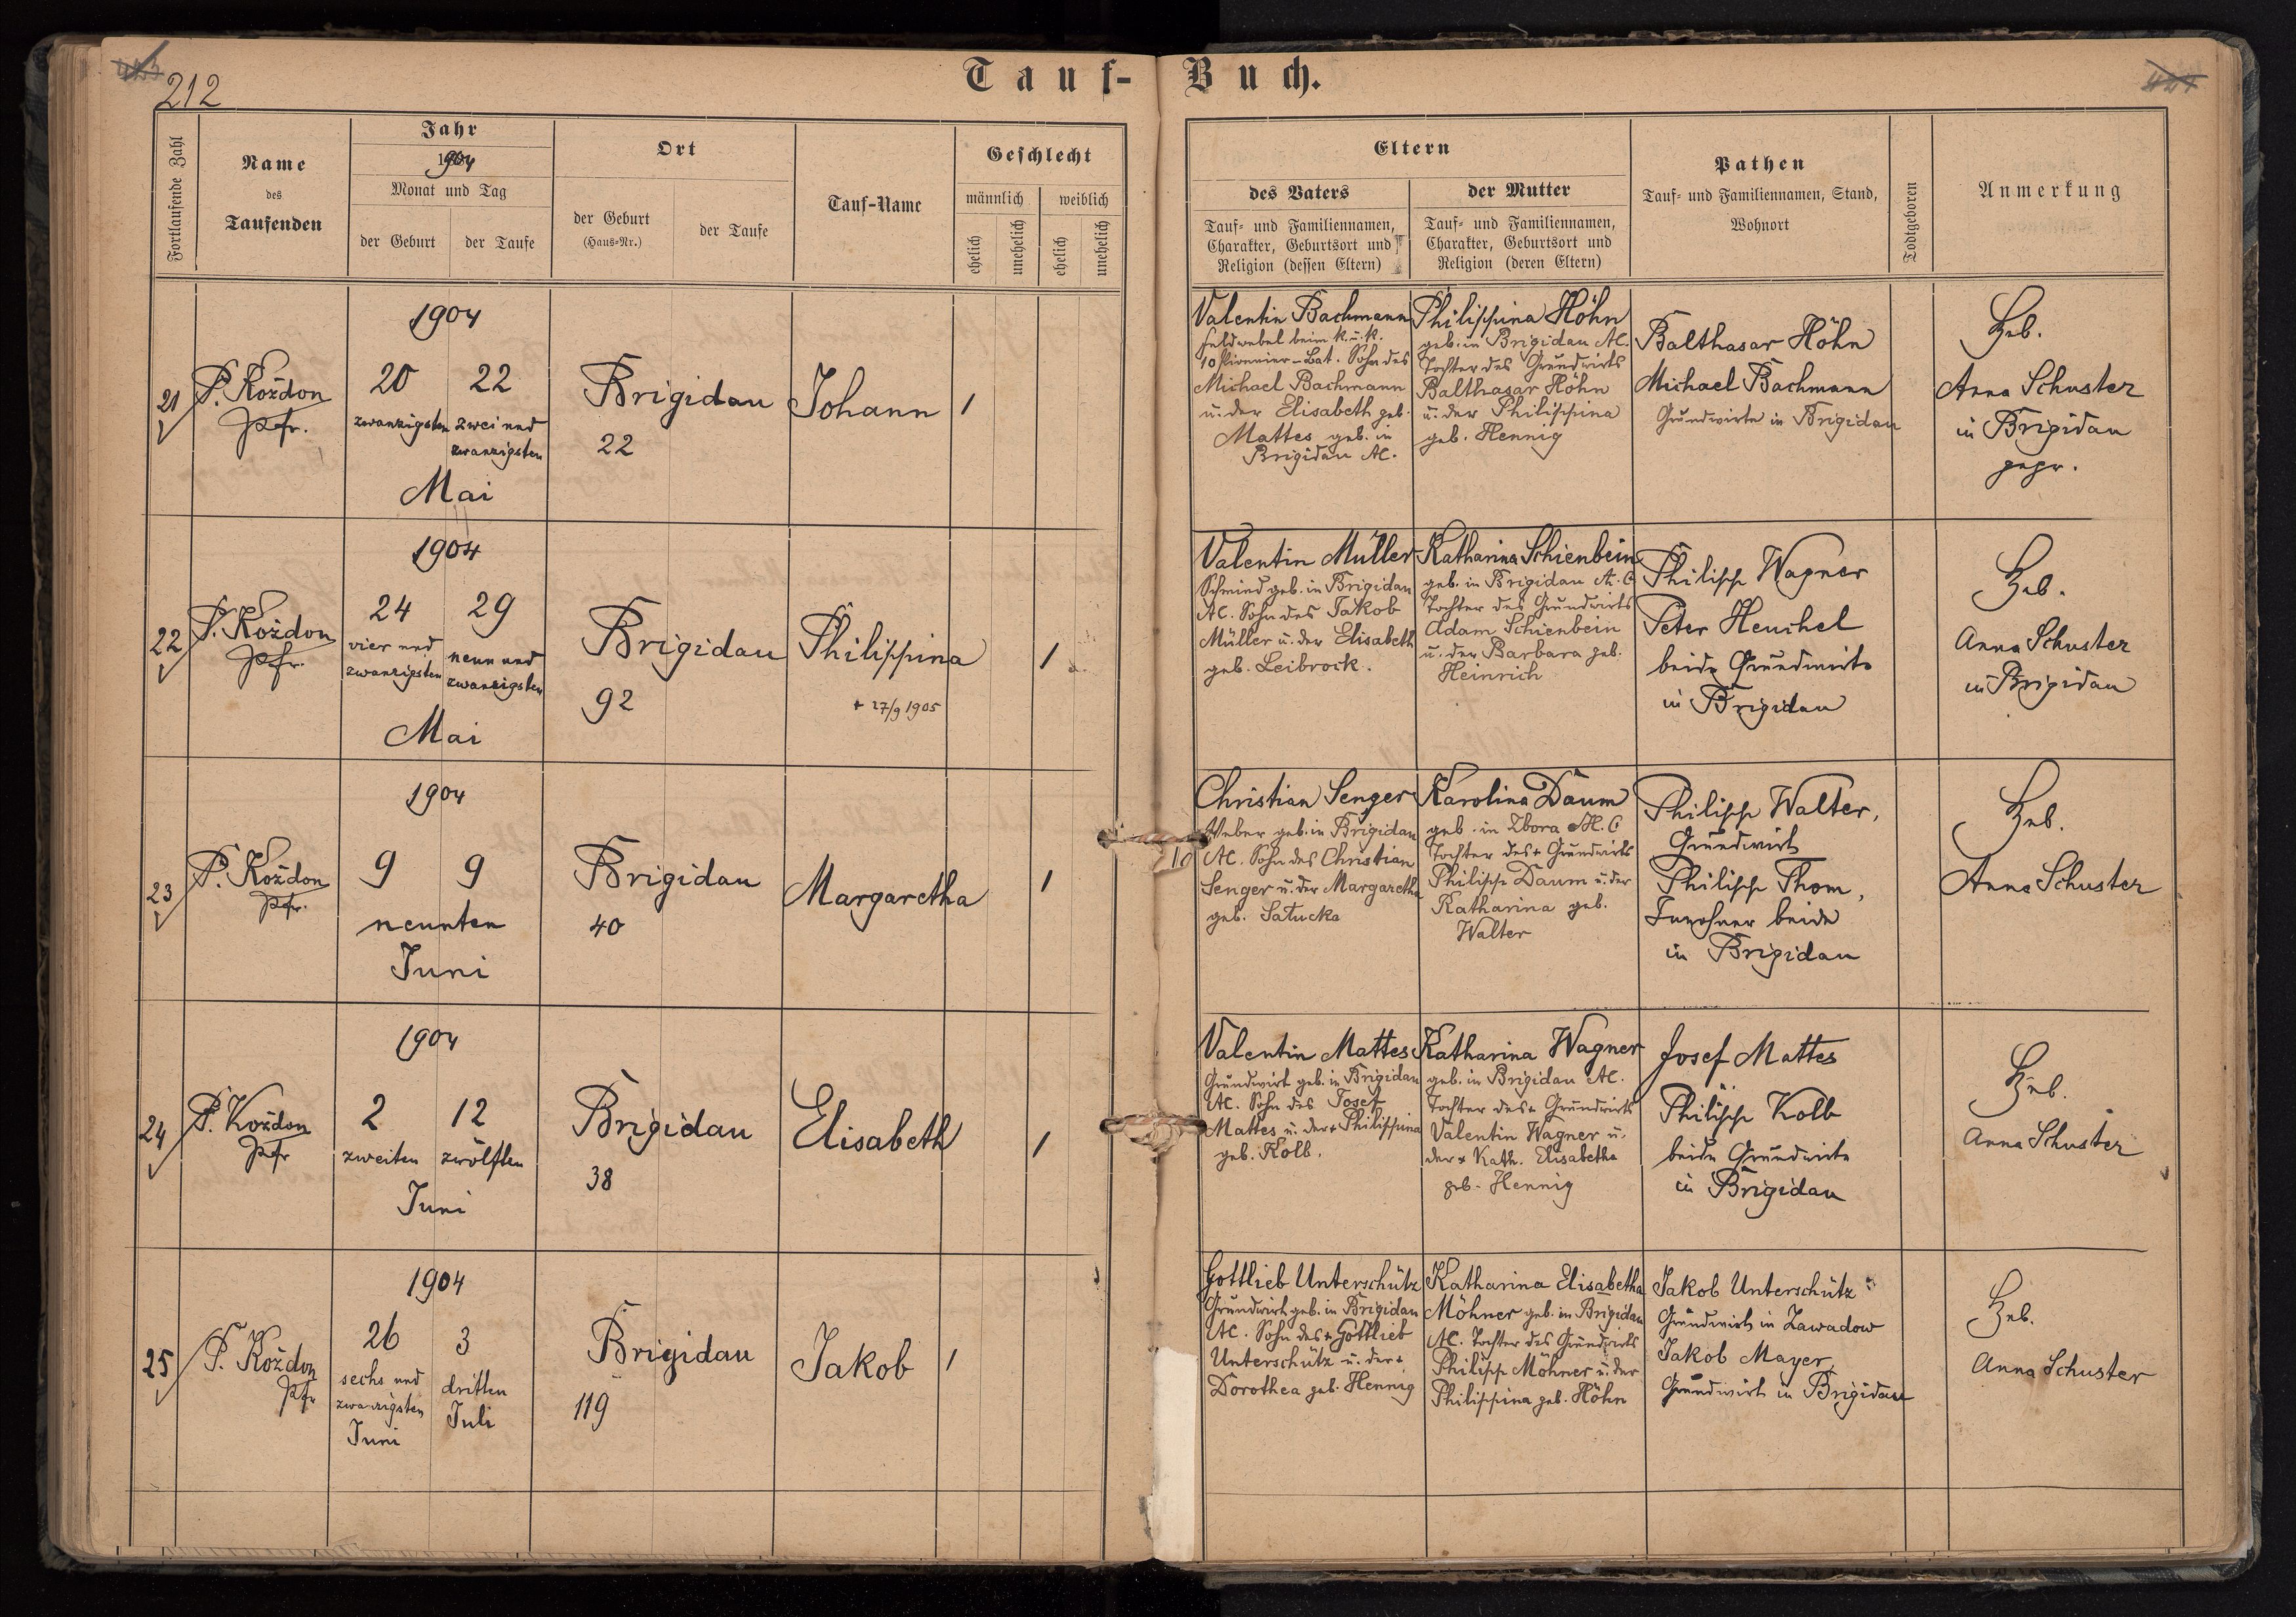 212
Tauf-Buch.
Fortlaufende Zahl
Name
des
Taufenden
Jahr
1904
Monat und Tag
der Geburt
der Taufe
Ort
der Geburt
(Haus-Nr.)
der Taufe
Tauf-Name
Geschlecht
männlich
weiblich
ehelich
unehelich
ehelich
unehelich
Eltern
des Vaters
Tauf- und Familiennamen,
Charakter, Geburtsort und
Religion (dessen Eltern)
der Mutter
Tauf- und Familiennamen,
Charakter, Geburtsort und
Religion (deren Eltern)
Pathen
Tauf- und Familiennamen, Stand,
Wohnort
Todtgeboren
Anmerkung
21
P. Koždon
Pfr.
1904
20
zwanzigsten
22
zwei und
zwanzigsten
Mai
Brigidau
22
Johann
1
Valentin Bachmann
Feldwebel beim k. u. k.
10 Pionnier-Bat. Sohn des
Michael Bachmann
u. der Elisabeth geb.
Mattes geb. in
Brigidau AC.
Philippina Höhn
geb. in Brigidau AC.
Tochter des Grundwirts
Balthasar Höhn
u. der Philippina
geb. Hennig
Balthasar Höhn
Michael Bachmann
Grundwirte in Brigidau
Heb.
Anna Schuster
in Brigidau
gepr.
22
P. Koždon
Pfr.
1904
24
vier und
zwanzigsten
29
neun und
zwanzigsten
Mai
Brigidau
92
Philippina
+ 27/9 1905
1
Valentin Müller
Schmied geb. in Brigidau
AC. Sohn des Jakob
Müller u. der Elisabeth
geb. Leibrock.
Katharina Schienbein
geb. in Brigidau A. C
Tochter des Grundwirts
Adam Schienbein
u. der Barbara geb.
Heinrich
Philipp Wagner
Peter Heuchel
beide Grundwirte
in Brigidau
Heb.
Anna Schuster
in Brigidau
23
P. Koždon
Pfr.
1904
9
9
neunten
Juni
Brigidau
40
Margaretha
1
10
Christian Senger
Weber geb. in Brigidau
AC. Sohn des Christian
Senger u. der Margaretha
geb. Satucka
Karolina Daum
geb. in Zbora H. C
Tochter des + Grundwirts
Philipp Daum u. der
Katharina geb.
Walter
Philipp Walter,
Grundwirt
Philipp Thom,
Inwohner beide
in Brigidau
Heb.
Anna Schuster
24
P. Koždon
Pfr
1904
2
zweiten
12
zwölften
Juni
Brigidau
38
Elisabeth
1
Valentin Mattes
Grundwirt geb. in Brigidau
AC. Sohn des Josef
Mattes u. der + Philippina
geb. Kolb.
Katharina Wagner
geb. in Brigidau AC.
Tochter des + Grundwirts
Valentin Wagner u.
der + Kath. Elisabetha
geb. Hennig
Josef Mattes
Philipp Kolb
beide Grundwirte
in Brigidau
Heb.
Anna Schuster
25
P. Koždon
Pfr
1904
26
sechs und
zwanzigsten
Juni
3
dritten
Juli
Brigidau
119
Jakob
1
Gottlieb Unterschütz
Grundwirt geb. in Brigidau
AC. Sohn des + Gottlieb
Unterschütz u. der +
Dorothea geb. Hennig
Katharina Elisabetha
Möhner geb. in Brigidau
AC. Tochter des Grundwirts
Philipp Möhner u. der
Philippina geb. Höhn
Jakob Unterschütz
Grundwirt in Zawadow
Jakob Mayer,
Grundwirt in Brigidau
Heb.
Anna Schuster